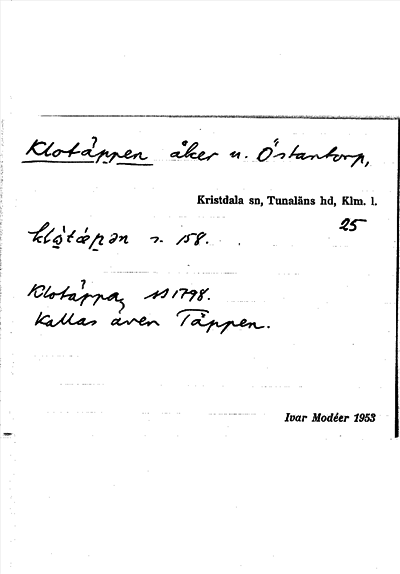 Klotäppen åker u. Östantorp,
Kristdala sn, Tunaläns hd, Klm. l.
25
s. 158.
Klotäppa, 1798.
Kallas även Täppen.
Ivar Modéer 1953